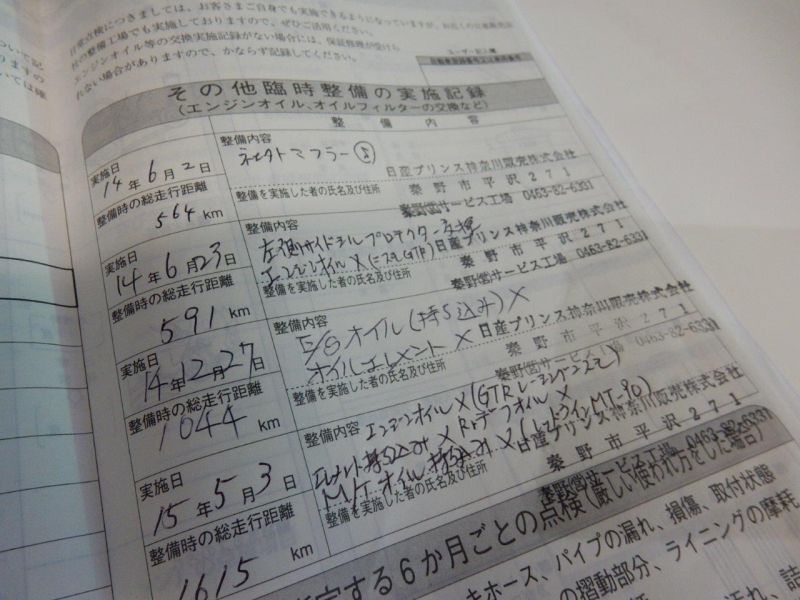 日常点検につきましては、お客さまご自身でも実施できるようになっていますが、お近くの
社の整備工場でも実施しておりますので、ぜひご活用ください。
エンジンオイル等の交換実施記録がない場合には、保証修理が受けら
れない場合がありますので、かならず記録してください。
ユーザー記入欄
その他臨時整備の実施記録
(エンジンオイル、オイルフィルターの交換など)
整備内容
実施日
14年6月2日
整備時の総走行距離
564 km
整備内容
マフラー
日産プリンス神奈川販売株式会社
整備を実施した者の氏名及び住所
秦野市平沢271
秦野サービス工場 0463-82-6331
実施日
14年6月23日
整備時の総走行距離
591 km
整備内容
左側サイドシルプロテクター交換
エンジンオイル×(ニスモGTR)
日産プリンス神奈川販売株式会社
整備を実施した者の氏名及び住所
秦野市平沢271
秦野サービス工場 0463-82-6331
実施日
14年12月27日
整備時の総走行距離
1044 km
整備内容
E/Gオイル(持ち込み)×
オイルエレメント×
日産プリンス神奈川販売株式会社
整備を実施した者の氏名及び住所
秦野市平沢271
秦野サービス工場 0463-82-6331
実施日
15年5月3日
整備時の総走行距離
1615 km
整備内容
エンジンオイル×(GTR
エレメント持込み× Rrデフオイル×
M/Tオイル持込み×(レッドラインMT-90)
日産プリンス神奈川販売株式会社
整備を実施した者の氏名及び住所
秦野市平沢271
秦野サービス工場 0463-82-6331
定する6か月ごとの点検(厳しい使われ方をした場合)
キホース、パイプの漏れ、損傷、取付状態
の摺動部分、ライニングの摩耗